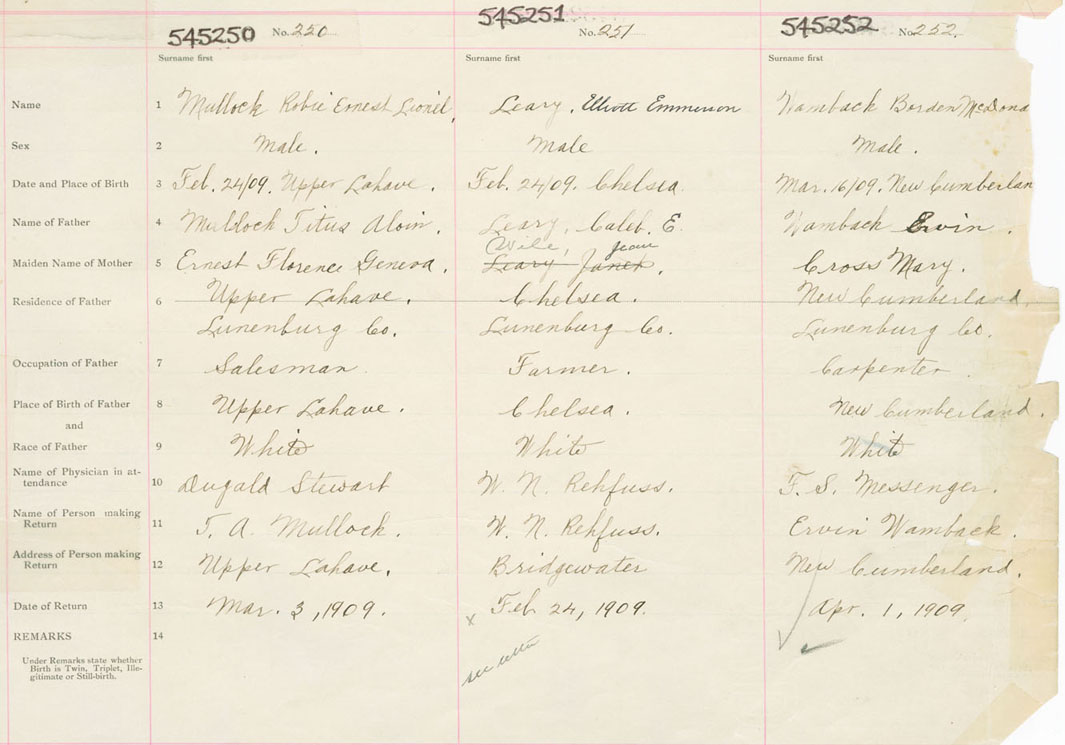 545250 No. 250 545251 No. 251 545252 No. 252.
Surname first Surname first Surname first
Name 1 Mullock Robie Ernest Lionel, Leary, Elliott Emmerson Wamback Borden McDona
Sex 2 Male. Male Male.
Date and Place of Birth 3 Feb. 24/09. Upper Lahave. Feb. 24/09. Chelsea. Mar. 16/09. New Cumberlan
Name of Father 4 Mullock Titus Alvin. Leary, Caleb. E. Wamback Ervin.
Wile, Jean
Maiden Name of Mother 5 Ernest Florence Geneva. Leary Janet. Cross Mary.
Residence of Father 6 Upper Lahave. Chelsea. New Cumberland.
Lunenburg Co. Lunenburg Co. Lunenburg Co.
Occupation of Father 7 Salesman Farmer. Carpenter.
Place of Birth of Father 8 Upper Lahave. Chelsea. New Cumberland.
and
Race of Father 9 White White White
Name of Physician in at-
tendance 10 Dugald Stewart W. N. Rehfuss. F. S. Messenger.
Name of Person making
Return 11 T. A. Mullock. W. N. Rehfuss. Ervin Wamback.
Address of Person making
Return 12 Upper Lahave. Bridgewater New Cumberland.
Date of Return 13 Mar. 3, 1909. x Feb 24, 1909. Apr. 1, 1909.
REMARKS 14
Under Remarks state whether
Birth is Twin, Triplet, Ille-
gitimate or Still-birth.
see